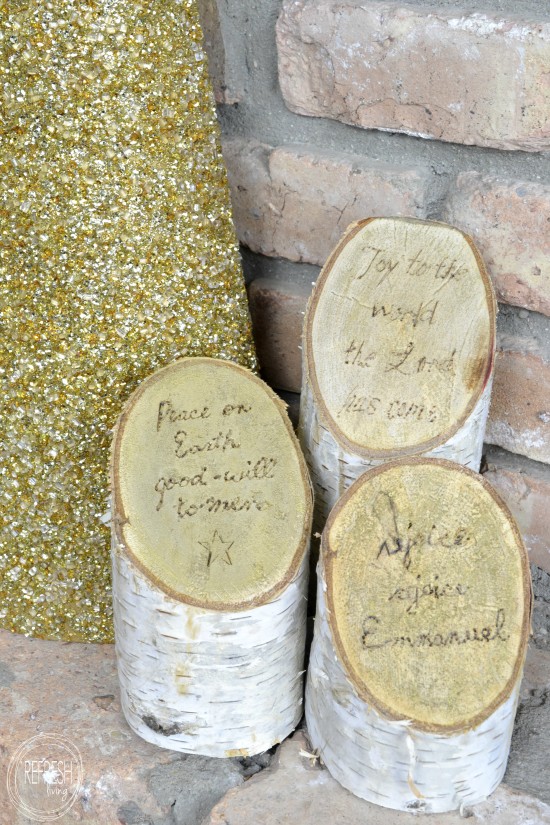 Joy to the
world
the Lord
has come
Peace on
Earth
good-will
to men
Rejoice
rejoice
Emmanuel
REFRESH
living